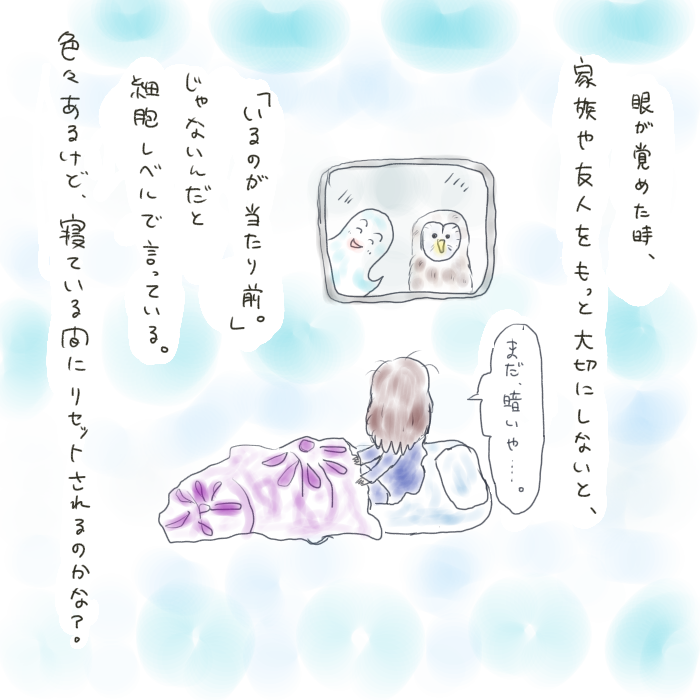 眼が覚めた時、
家族や友人をもっと大切にしないと、
まだ、暗いや……。
「いるのが当たり前。」
じゃないんだと
細胞レベルで言っている。
色々あるけど、寝ている間にリセットされるのかな?。